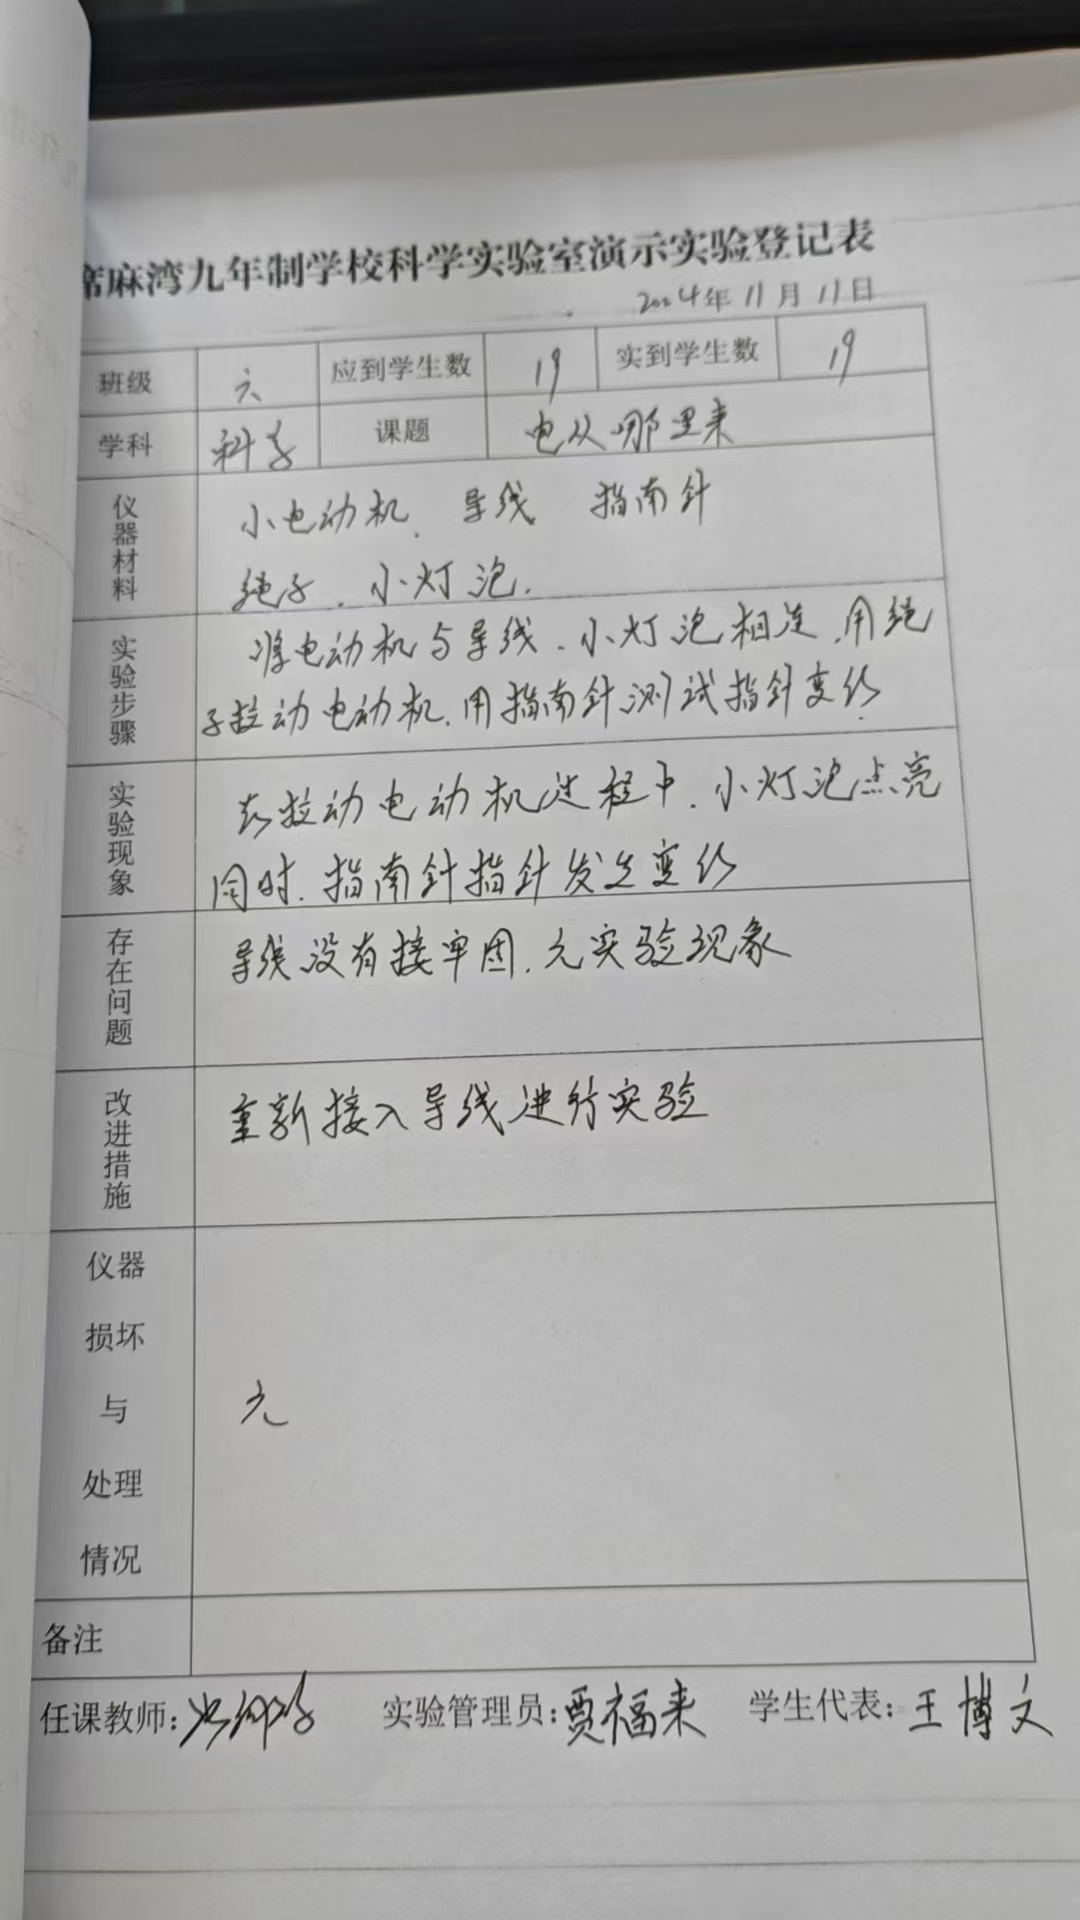 席麻湾九年制学校科学实验室演示实验登记表
2024年11月11日
班级 六 应到学生数 19 实到学生数 19
学科 科学 课题 电从哪里来
仪器材料 小电动机、导线、指南针
绳子、小灯泡.
实验步骤 将电动机与导线、小灯泡相连,用绳
子拉动电动机,用指南针测试指针变化
实验现象 在拉动电动机过程中,小灯泡点亮
同时,指南针指针发生变化
存在问题 导线没有接牢固,无实验现象
改进措施 重新接入导线进行实验
仪器
损坏
与 无
处理
情况
备注
任课教师: 实验管理员:贾福来 学生代表:王博文